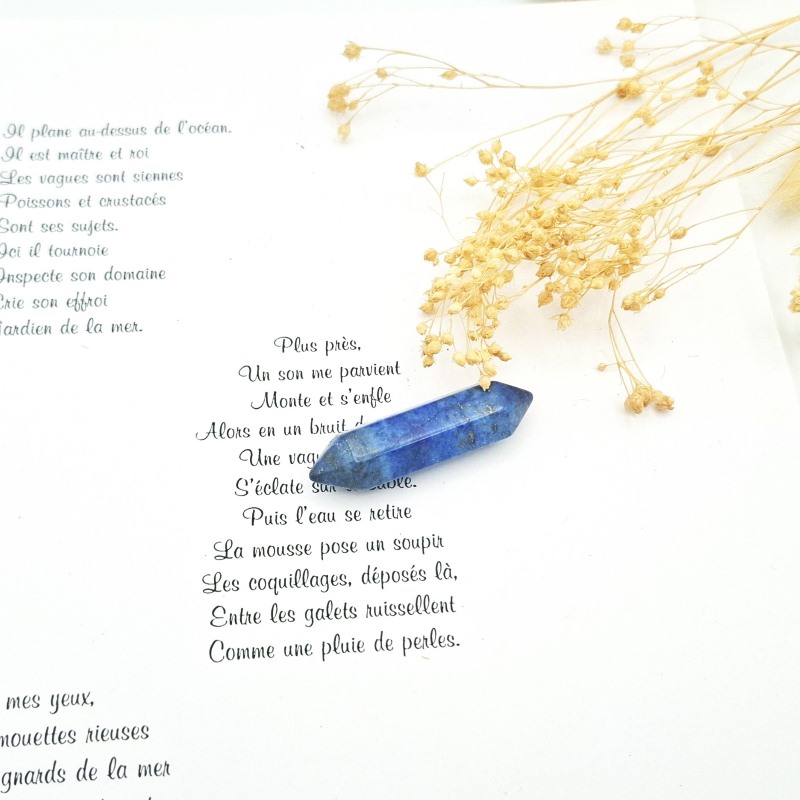 Il plane au-dessus de l'océan.
Il est maître et roi
Les vagues sont siennes
Poissons et crustacés
Sont ses sujets.
Ici il tournoie
Inspecte son domaine
Crie son effroi
de la mer.
Plus près,
Un son me parvient
Monte et s'enfle
Alors en un bruit
Une
S'éclate
Puis l'eau se retire
La mousse pose un soupir
Les coquillages, déposés là,
Entre les galets ruissellent
Comme une pluie de perles.
mes yeux,
rieuses
de la mer